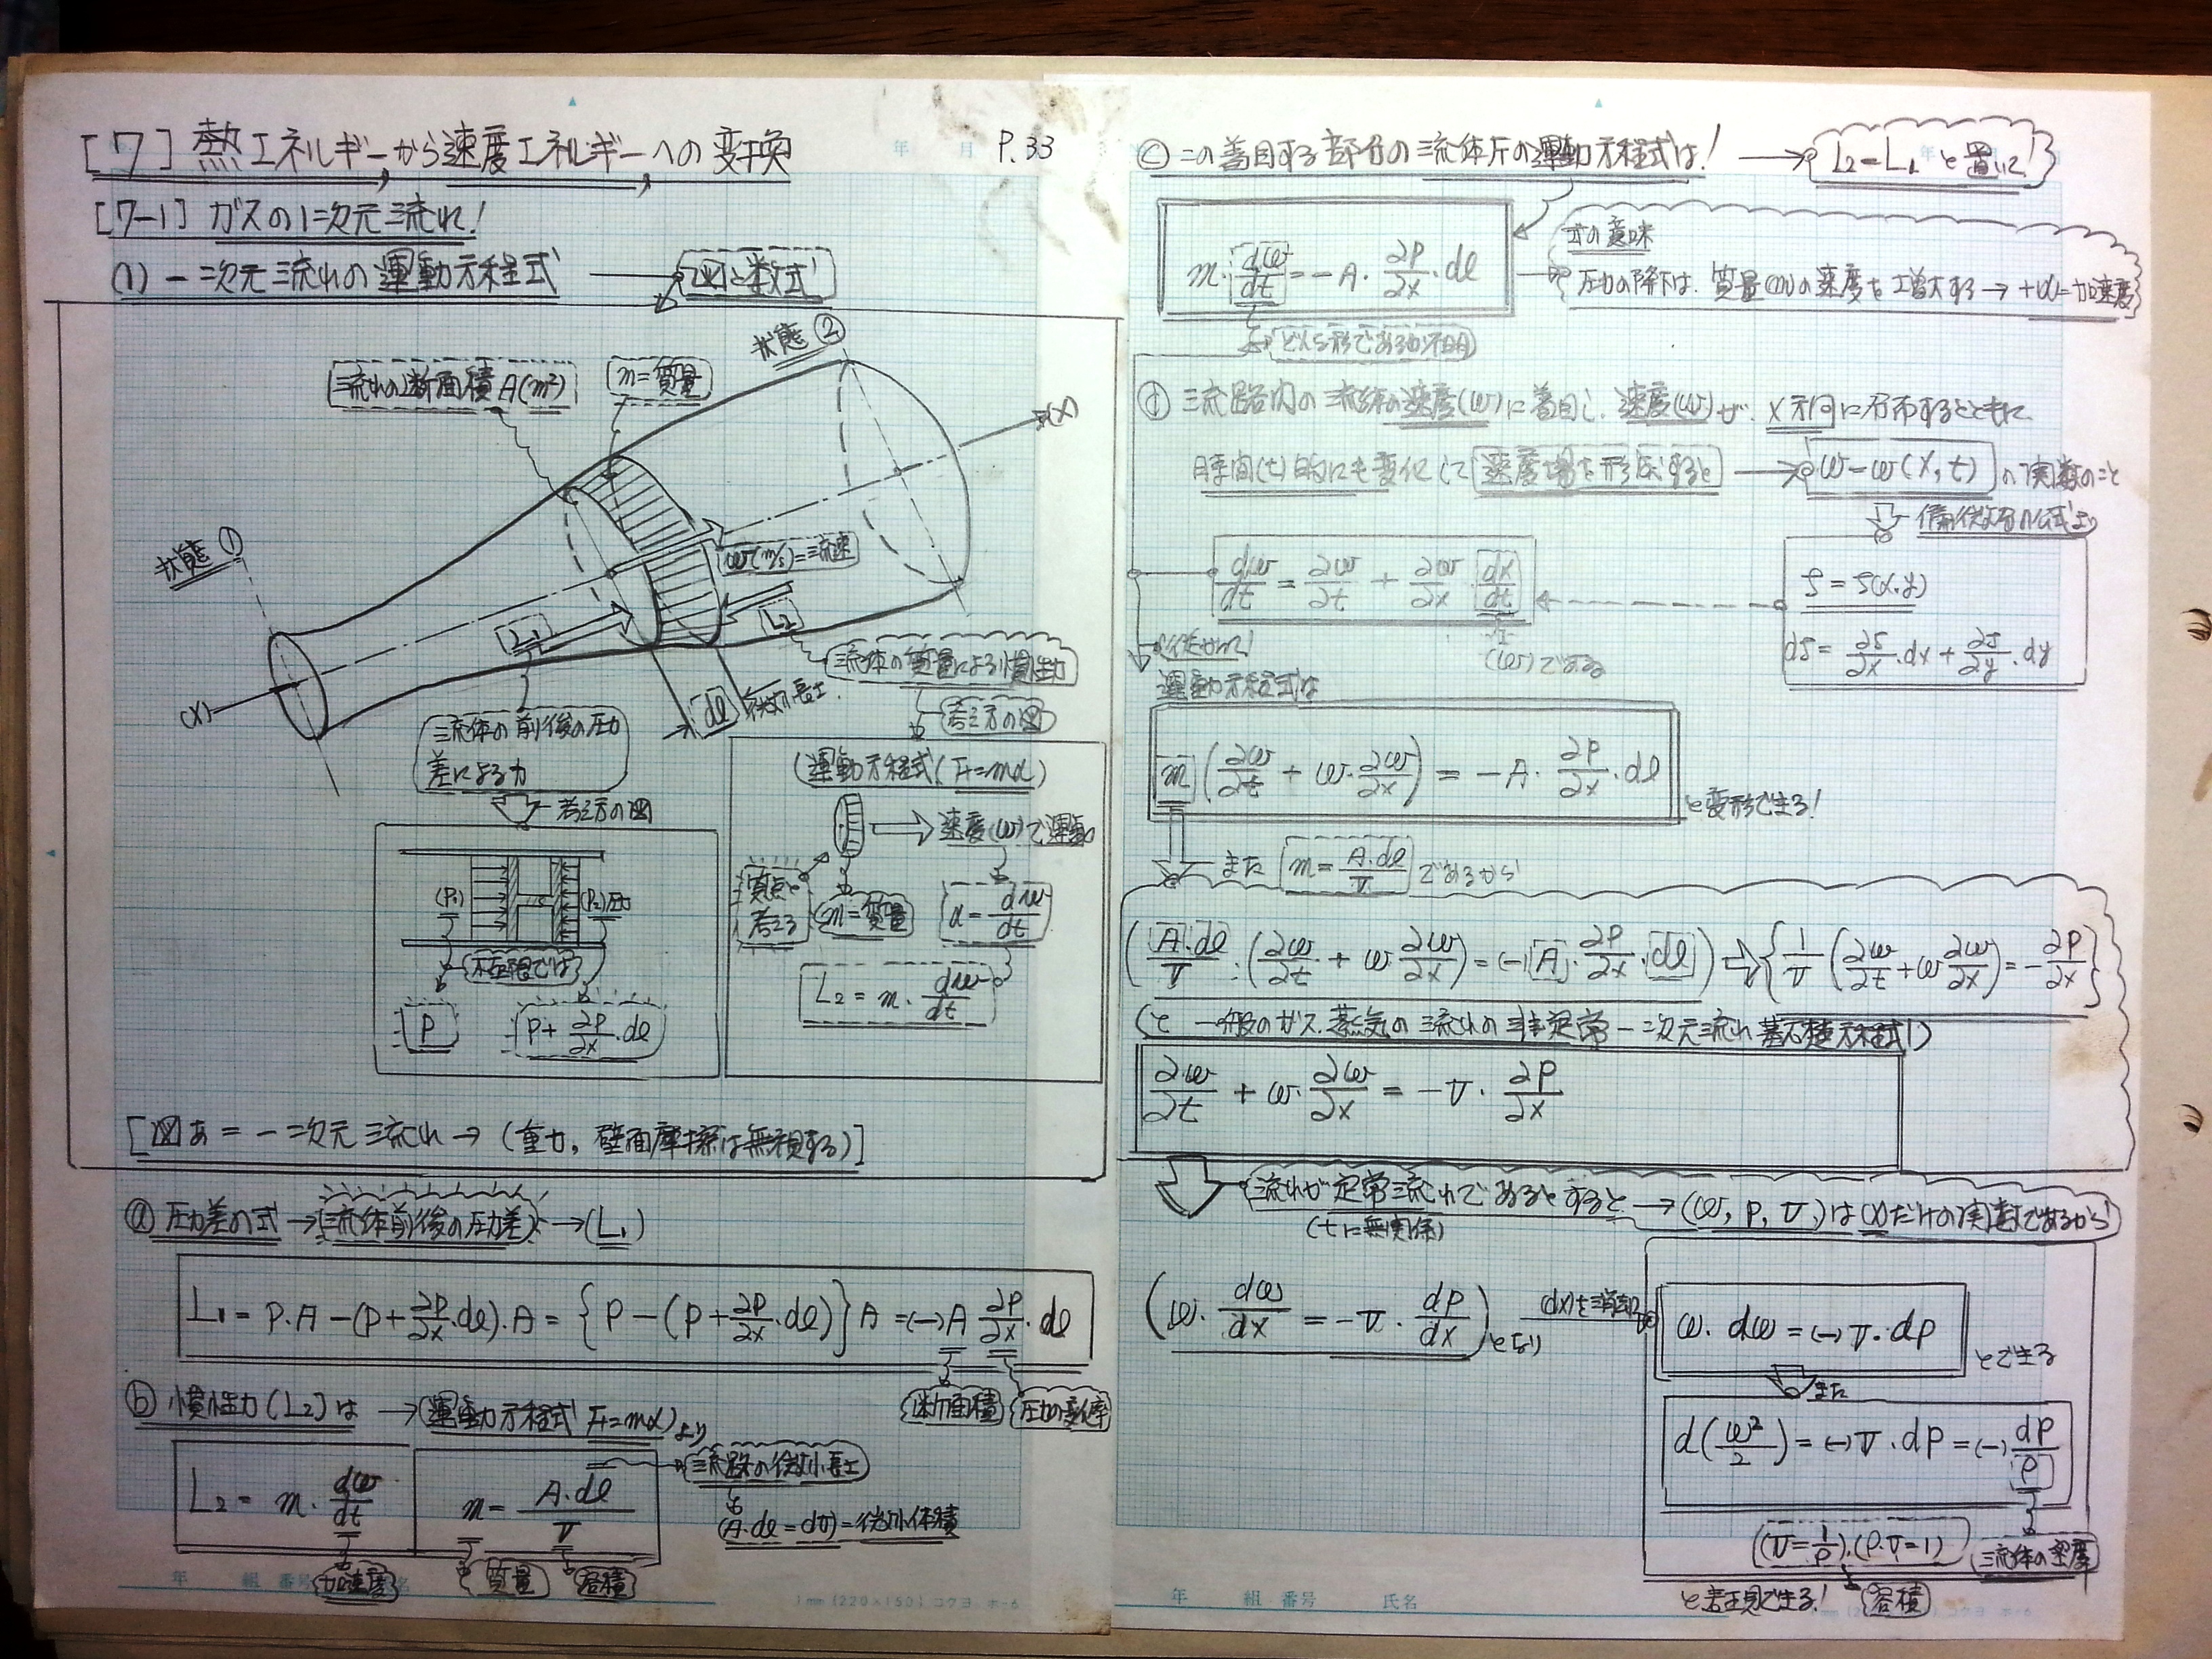 [7] 熱エネルギーから速度エネルギーへの変換
P.33
[7-1] ガスの1次元流れ!
(1) 一次元流れの運動方程式 → 図と数式
状態②
流れの断面積 A(m²)
m=質量
(X)
状態①
w(m/s)=流速
L1
L2
流体の質量による慣性力
(X)
dl 微小長さ
考え方の図
流体の前後の圧力
差による力
考え方の図
(運動方程式(F=mα)
速度(w)で運動
(P1)
(P2)圧力
質点と
考える
m=質量
α=dw/dt
L2=m・dw/dt
P
P+∂P/∂x・dl
[図あ=一次元流れ→(重力,壁面摩擦は無視する)]
ⓐ 圧力差の式→流体前後の圧力差→(L1)
L1=P・A-(P+∂P/∂x・dl)・A={P-(P+∂P/∂x・dl)}A=(-)A ∂P/∂x・dl
断面積
圧力の変化率
ⓑ 慣性力(L2)は→(運動方程式 F=mα)より
L2=m・dw/dt
m=A・dl/v
流路の微小長さ
(A・dl=dv)=微小体積
加速度
質量
容積
年 組 番号
1mm (220×150) コクヨ ホ-6
ⓒ この着目する部分の流体片の運動方程式は! → L2=L1と置いて
m・dw/dt=-A・∂P/∂x・dl
式の意味
圧力の降下は、質量(m)の速度を増大する→+α=加速度
どんな形であるか不明
ⓓ 流路内の流体の速度(w)に着目し、速度(w)が、X方向に分布するとともに
時間(t)的にも変化して速度場を形成すると → w=w(x,t)の関数のこと
偏微分の公式より
dw/dt=∂w/∂t+∂w/∂x・dx/dt
(w)である
ζ=ζ(x,y)
dζ=∂ζ/∂x・dx+∂ζ/∂y・dy
従って!
運動方程式は
m(∂w/∂t+w・∂w/∂x)=-A・∂P/∂x・dl
と変形できる!
また m=A・dl/v であるから
(A・dl/v・(∂w/∂t+w ∂w/∂x)=(-)A・∂P/∂x・dl) ⇨ {1/v(∂w/∂t+w ∂w/∂x)=-∂P/∂x}
(と 一般のガス,蒸気の流れの非定常一次元流れ基礎方程式!)
∂w/∂t+w・∂w/∂x=-v・∂P/∂x
流れが定常流れであるとすると→(w,P,v)は(x)だけの関数であるから
(tに無関係)
(w・dw/dx=-v・dp/dx)となり
(dx)を消去して
w・dw=(-)v・dp
とできる
また
d(w²/2)=(-)v・dp=(-)dp/ρ
(v=1/ρ),(ρ・v=1)
流体の密度
と表現できる!
容積
年 組 番号 氏名